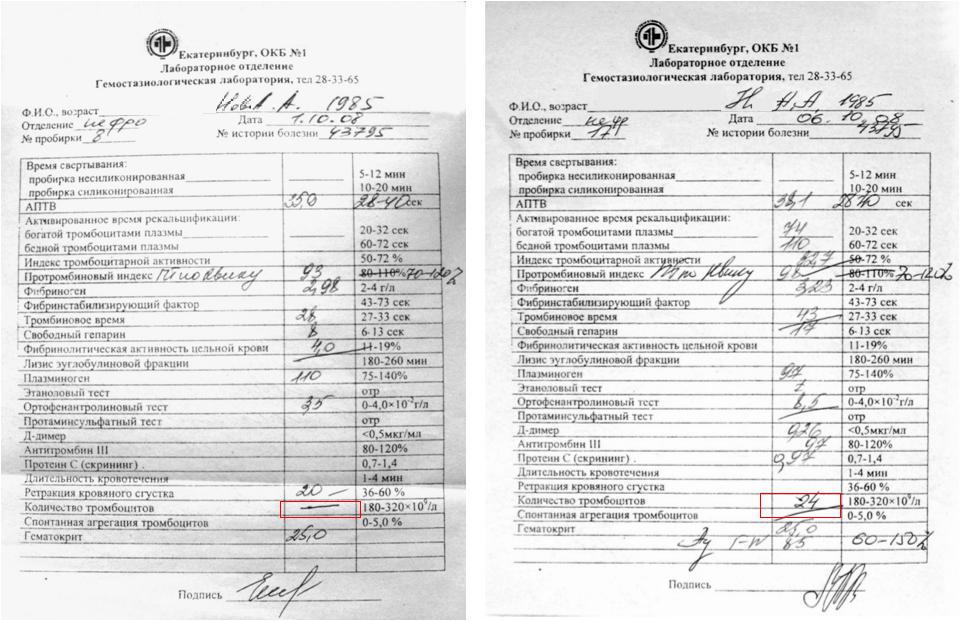 Екатеринбург, ОКБ №1
Лабораторное отделение
Гемостазиологическая лаборатория, тел 28-33-65
Ф.И.О., возраст А. 1985
Отделение нефро Дата 1.10.08
№ пробирки 8 № истории болезни 43795
Время свертывания:
пробирка несиликонированная 5-12 мин
пробирка силиконированная 10-20 мин
АПТВ 350 28-40 сек
Активированное время рекальцификации:
богатой тромбоцитами плазмы 20-32 сек
бедной тромбоцитами плазмы 60-72 сек
Индекс тромбоцитарной активности 50-72 %
Протромбиновый индекс по Квику 93 80-110% 70-120%
Фибриноген 2,98 2-4 г/л
Фибринстабилизирующий фактор 43-73 сек
Тромбиновое время 28 27-33 сек
Свободный гепарин 8 6-13 сек
Фибринолитическая активность цельной крови 4,0 11-19%
Лизис эуглобулиновой фракции 180-260 мин
Плазминоген 110 75-140%
Этаноловый тест отр
Ортофенантролиновый тест 3,5 0-4,0×10⁻²г/л
Протаминсульфатный тест отр
Д-димер <0,5мкг/мл
Антитромбин III 80-120%
Протеин С (скрининг) . 0,7-1,4
Длительность кровотечения 1-4 мин
Ретракция кровяного сгустка 20 – 36-60 %
Количество тромбоцитов — 180-320×10⁹/л
Спонтанная агрегация тромбоцитов 0-5,0 %
Гематокрит 25,0
Подпись
Екатеринбург, ОКБ №1
Лабораторное отделение
Гемостазиологическая лаборатория, тел 28-33-65
Ф.И.О., возраст Н. А.А 1985
Отделение нефр Дата 06. 10. 08
№ пробирки 17 № истории болезни 43795
Время свертывания:
пробирка несиликонированная 5-12 мин
пробирка силиконированная 10-20 мин
АПТВ 38,1 28-40 сек
Активированное время рекальцификации:
богатой тромбоцитами плазмы 74 20-32 сек
бедной тромбоцитами плазмы 110 60-72 сек
Индекс тромбоцитарной активности 62,7 50-72 %
Протромбиновый индекс по Квику 98 80-110% 70-120%
Фибриноген 3,23 2-4 г/л
Фибринстабилизирующий фактор 43-73 сек
Тромбиновое время 43 27-33 сек
Свободный гепарин 17 6-13 сек
Фибринолитическая активность цельной крови 11-19%
Лизис эуглобулиновой фракции 180-260 мин
Плазминоген 97 75-140%
Этаноловый тест отр
Ортофенантролиновый тест 8,5 0-4,0×10⁻²г/л
Протаминсульфатный тест отр
Д-димер 926 <0,5мкг/мл
Антитромбин III 97 80-120%
Протеин С (скрининг) . 0,97 0,7-1,4
Длительность кровотечения 1-4 мин
Ретракция кровяного сгустка 36-60 %
Количество тромбоцитов 24 180-320×10⁹/л
Спонтанная агрегация тромбоцитов 0-5,0 %
Гематокрит 25,0
85 60-150%
Подпись